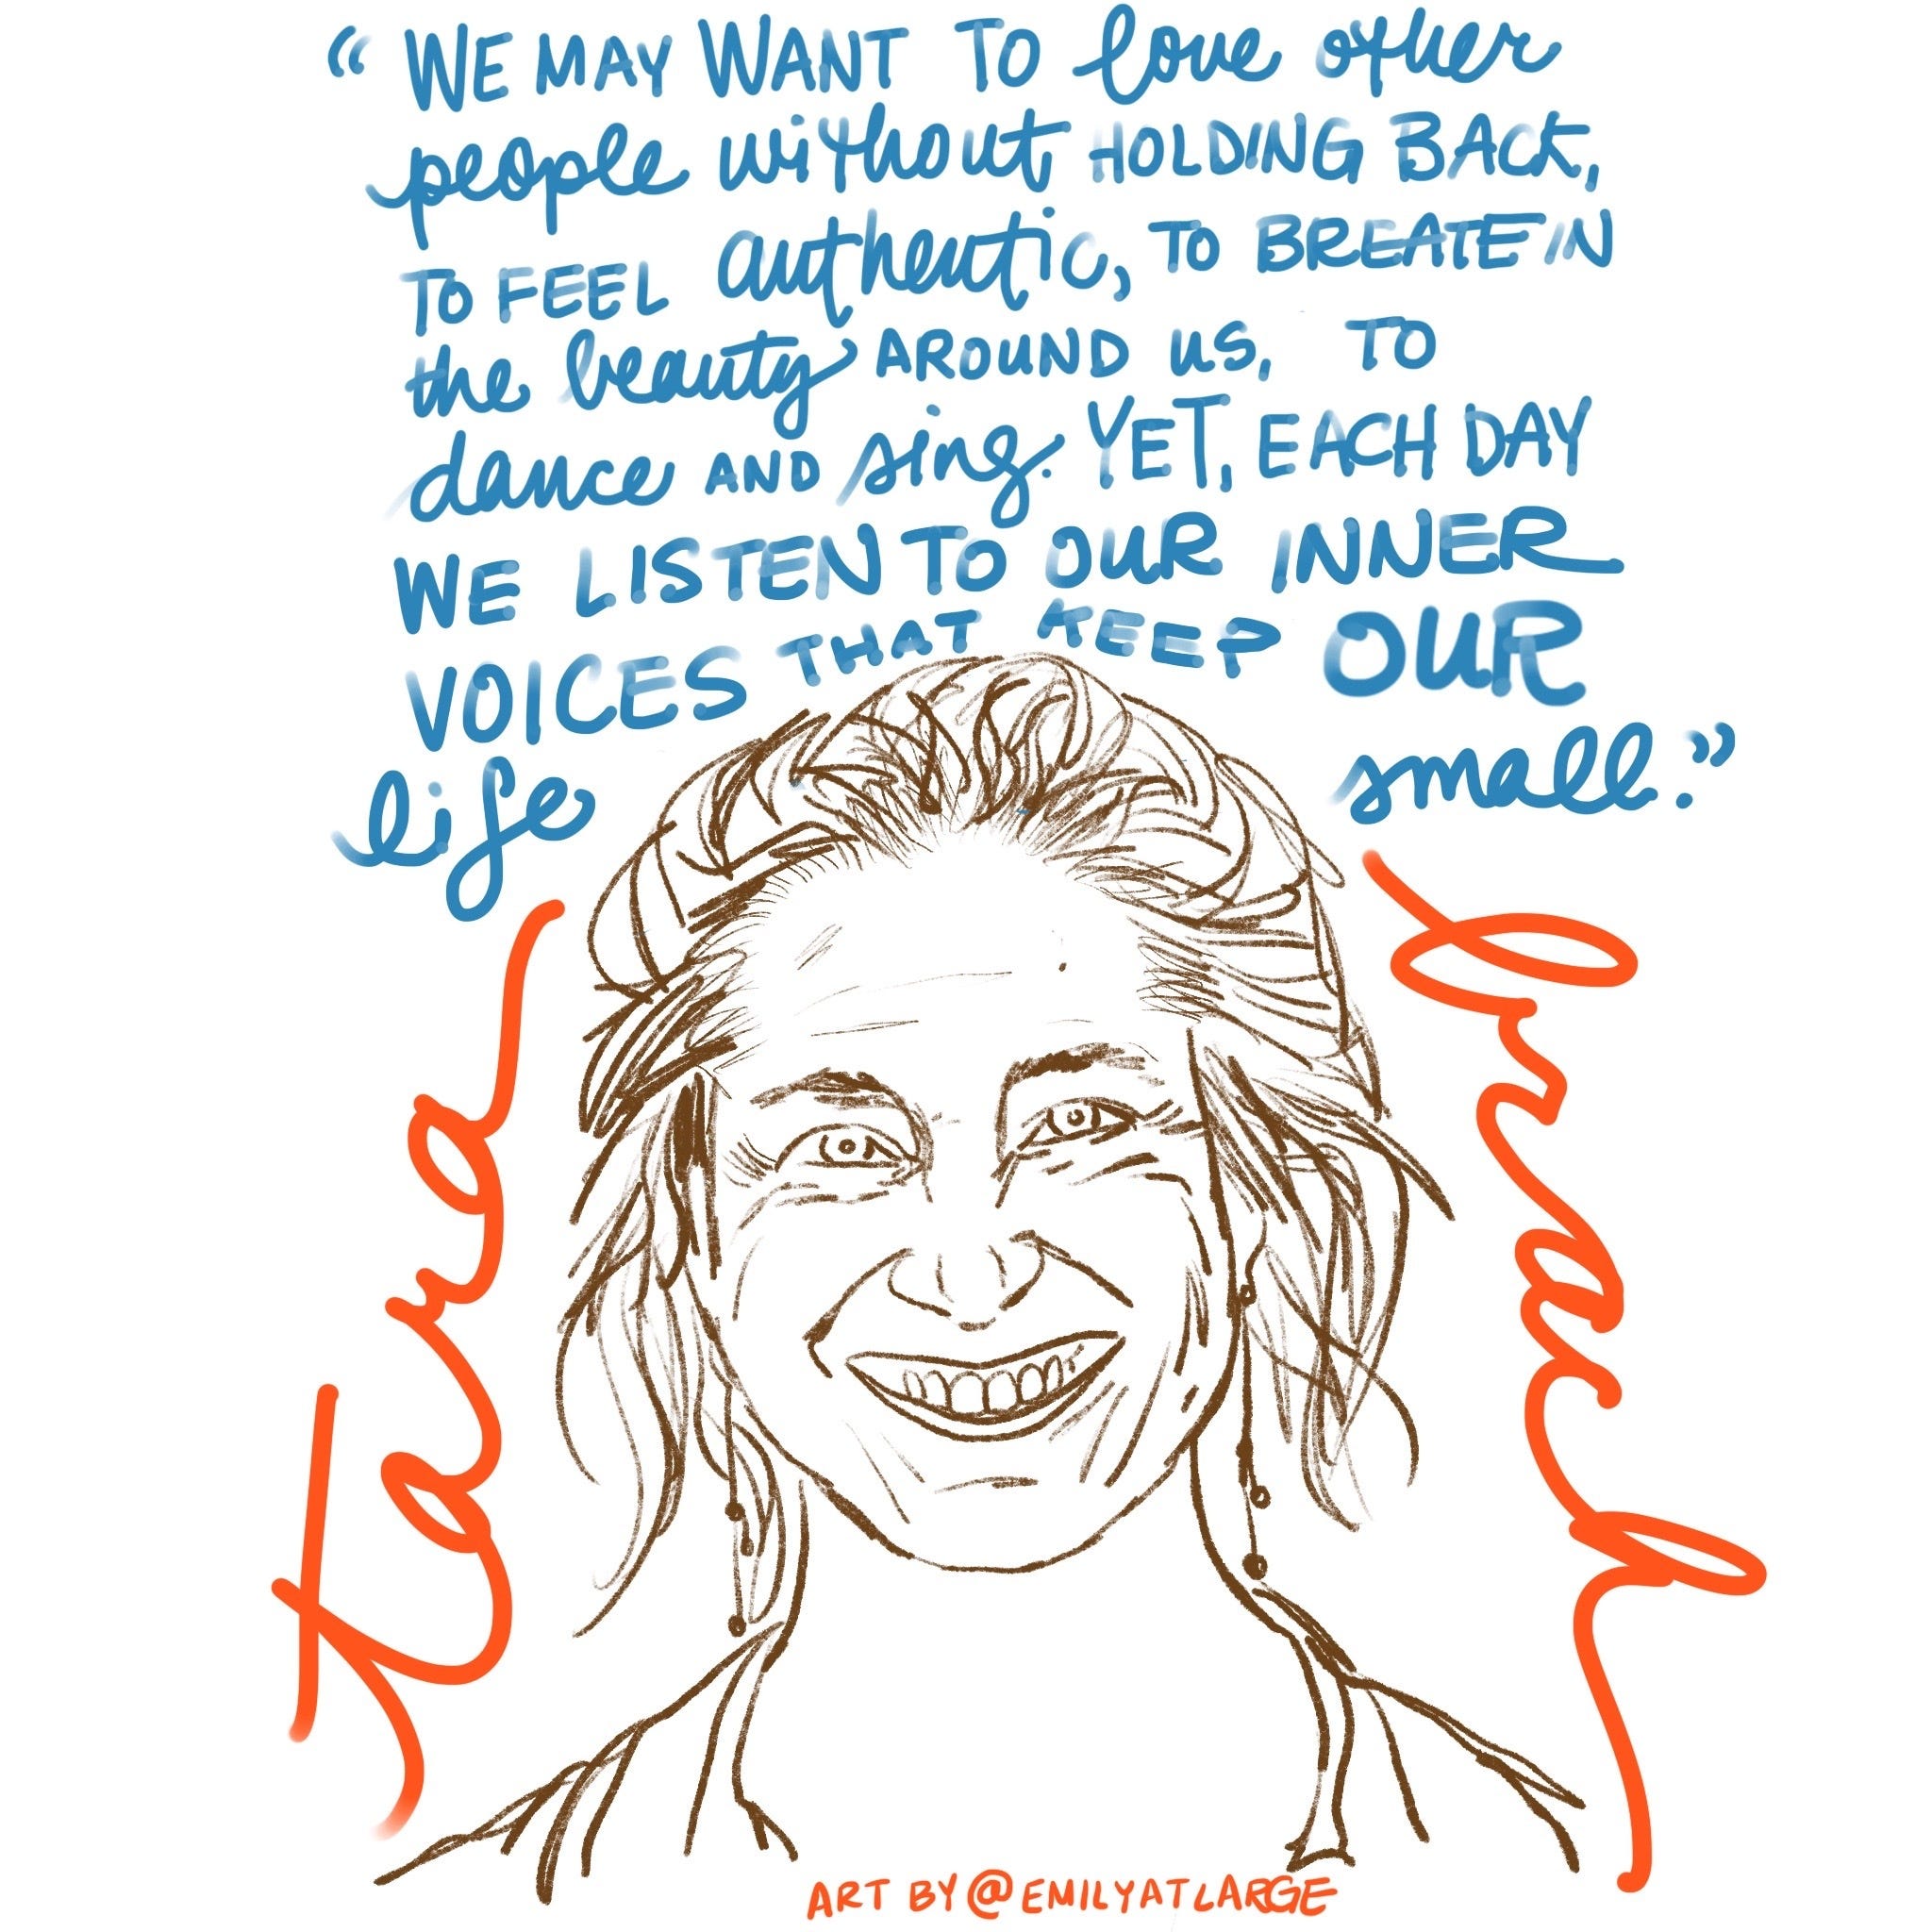 “WE MAY WANT TO love other
people without HOLDING BACK,
TO FEEL authentic, TO BREATE IN
the beauty AROUND US, TO
dance AND sing. YET, EACH DAY
WE LISTEN TO OUR INNER
VOICES THAT KEEP OUR
life small.”
tara
brach
ART BY @EMILYATLARGE